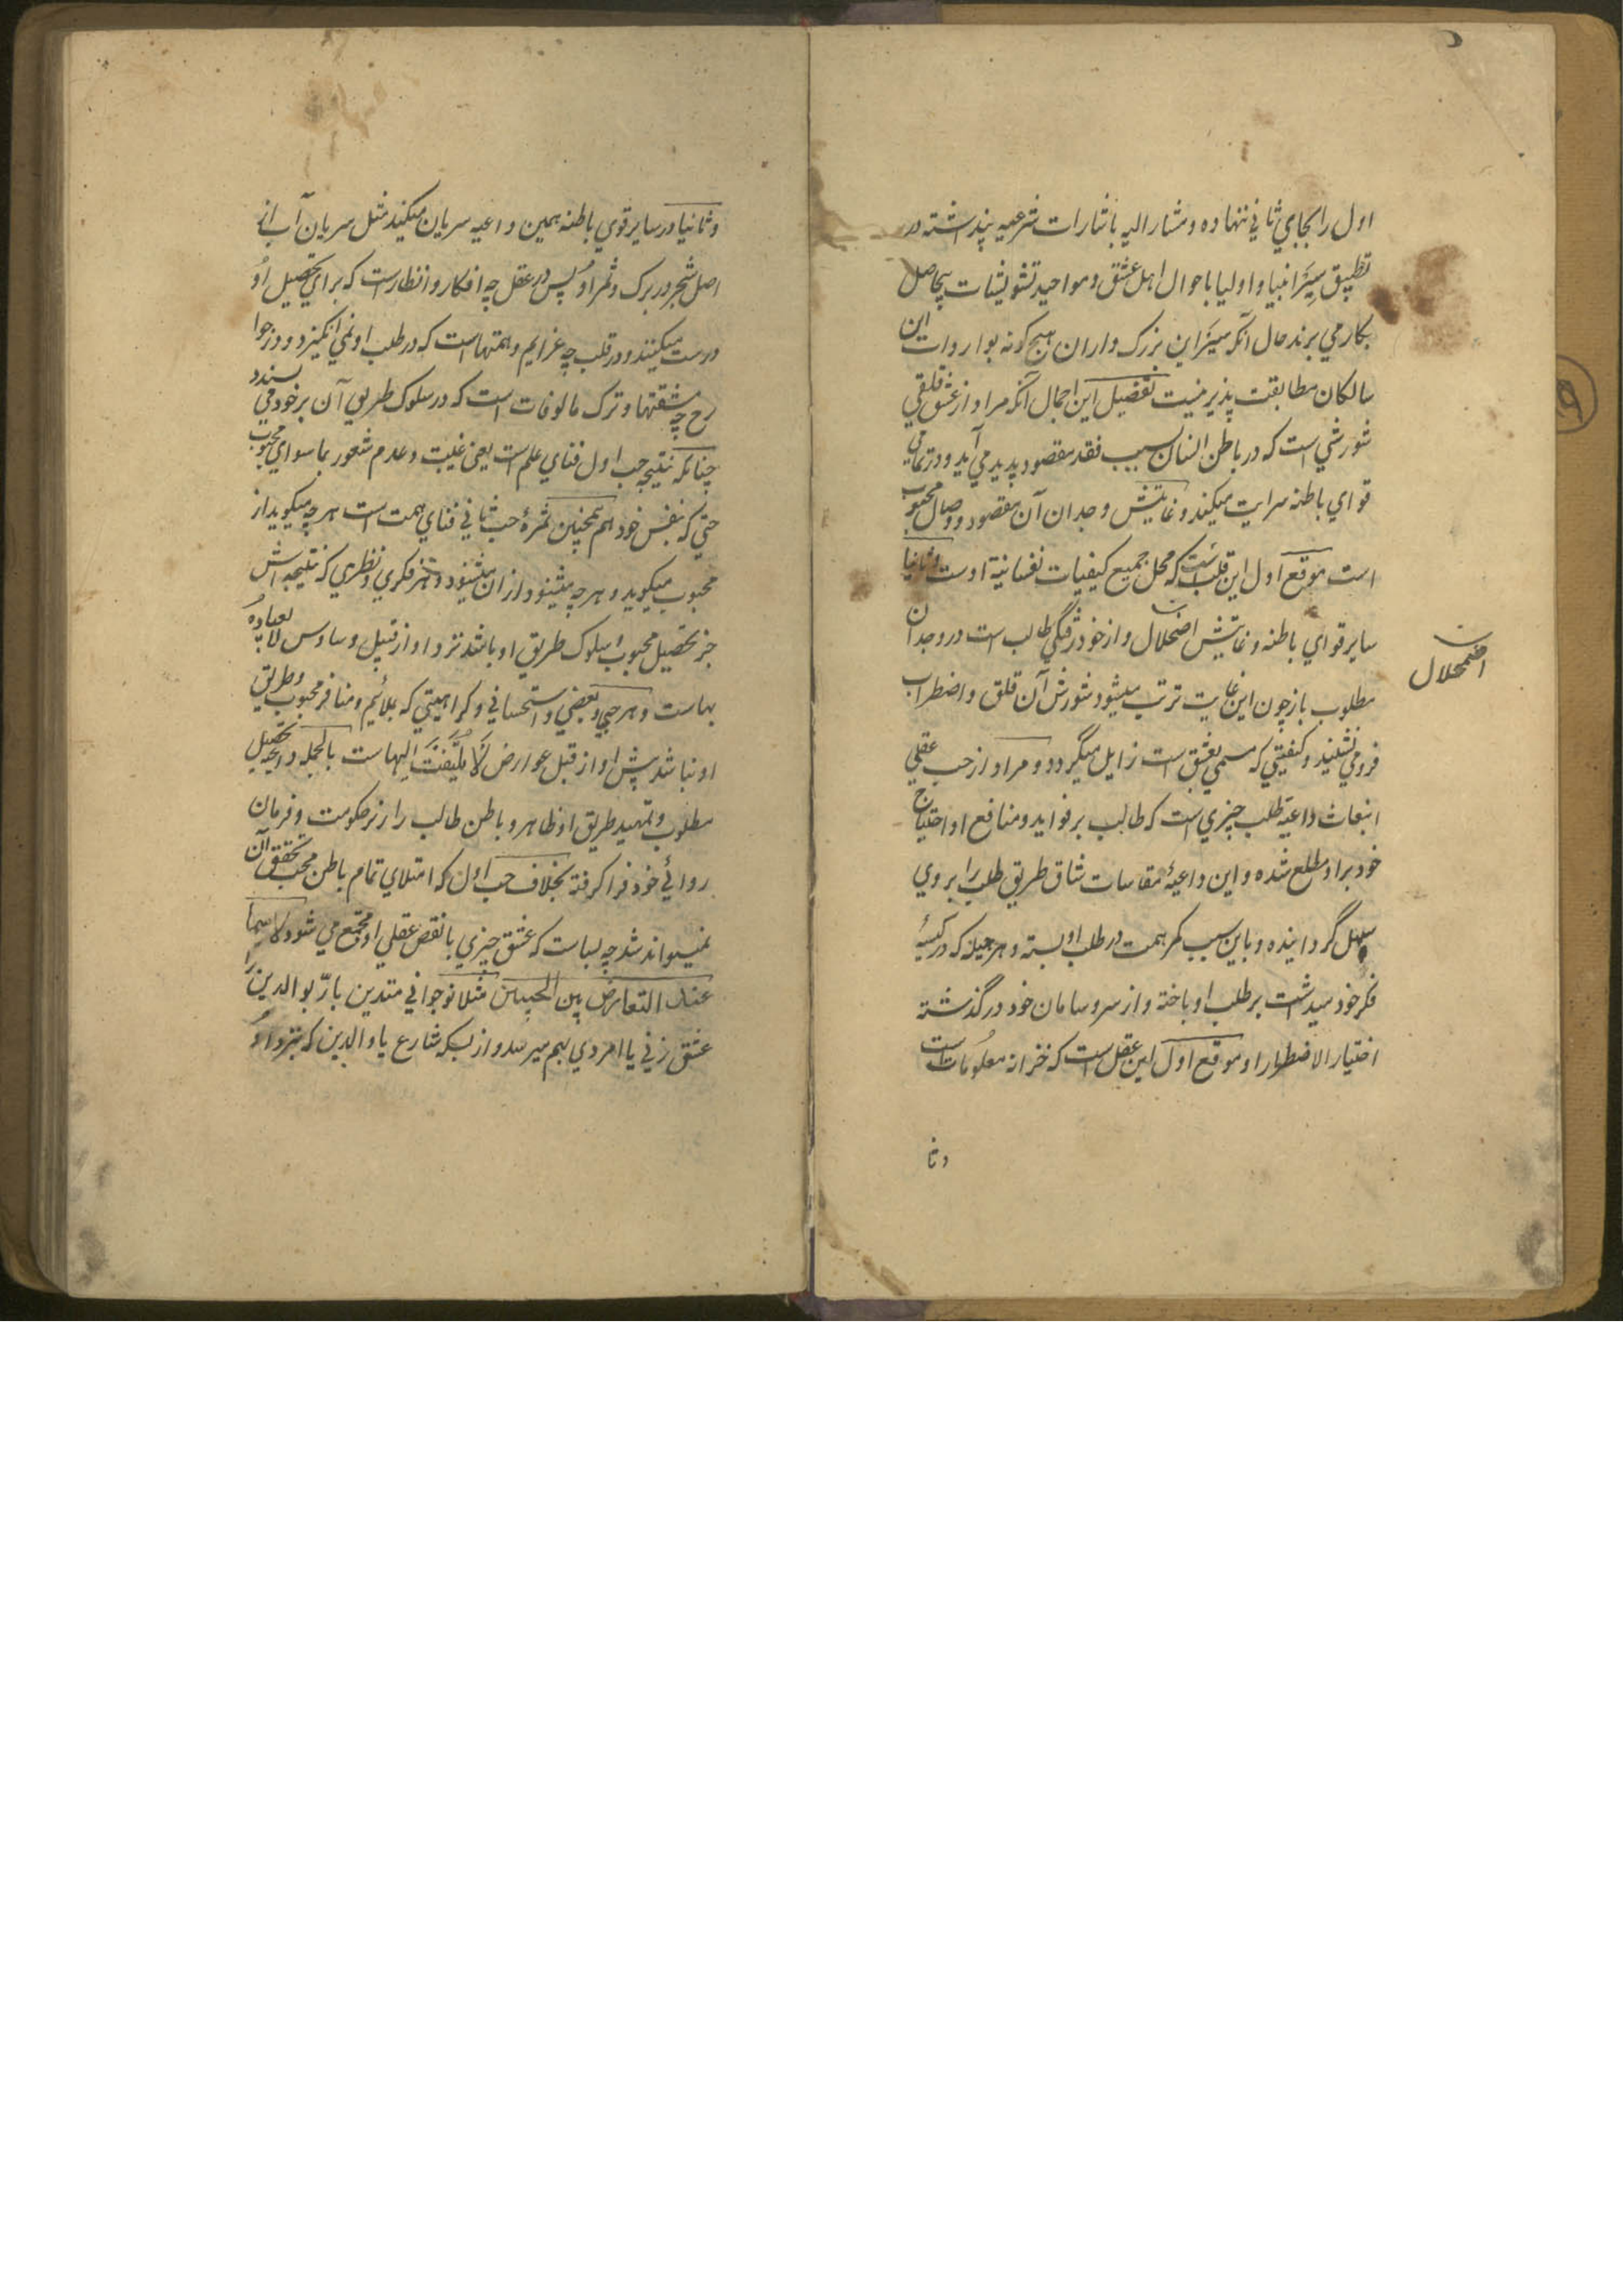 اول را بجاي ثاني نهاده و مشار اليه باشارات شرعيه پنداشته در
تطبيق سِيَر انبيا و اوليا باحوال اهل عشق و مواجيد تشويشات بيحاصل
بكار مي برند حال آنكه سِيَر اين بزرگ واران هيچ گونه بواردات اين
سالكان مطابقت پذير نيست تفصيل اين اجمال آنكه مراد از عشق قلقي
شورشي است كه در باطن انسان بسبب فقد مقصود پديد مي آيد و در تمامي
قواي باطنه سرايت ميكند و غايتش وجدان آن مقصود و وصال محبوب
است موقع اول اين قلب است كه محل جميع كيفيات نفسانية اوست و ثانيا
ساير قواي باطنه و غايتش اضحلال و از خود رفتگي طالب است در وجدان
اضمحلال
مطلوب باز چون اين غايت ترتب ميشود شورش آن قلق و اضطراب
فرو مي نشيند و كيفيتي كه مسمي بعشق است زايل ميگردد و مراد از حب عقلي
انبعاث داعيۀ طلب چيزي است كه طالب بر فوايد و منافع او احتياج
خود براو مطلع شده و اين داعيۀ مقاسات شاق طريق طلب را بروي
سهل گردانيده و باين سبب كمر همت در طلب او بسته و هر حيله كه در كيسۀ
فكر خود ميداشت بر طلب او باخته و از سر و سامان خود در گذشته
اختيار الاضطرارا و موقع اول اين عقل است كه خزانه معلومات است
وثا
و ثانيا در ساير قوي باطنه همين داعيه سريان ميكند مثل سريان آب از
اصل شجر در برگ و ثمر او پس در عقل چه افكار و انظار است كه براي تحصيل او
درست ميكنند و در قلب چه عزايم و همتها است كه در طلب او نمي انگيزد و در جوا
رح چه مشقتها و ترك مالوفات است كه در سلوك طريق آن بر خود مي پسندد
چنانكه نتيجه حب اول فناي علم است يعني غيبت و عدم شعور بما سواي محبوب
حتي كه بنفس خود هم همچنين ثمرۀ حب ثاني فناي همت است هر چه ميگويد از
محبوب ميگويد و هر چه ميشنود از ان ميشنود و هر فكري و نظري كه نتيجه اش
جز تحصيل محبوب و سلوك طريق او باشد نزد او از قبيل وساوس لا يعباء
بهاست و هر حبي و بغضي و استحساني و كراهيتي كه بملائم و منافر محبوب و طريق
او نباشد پيش او از قبل عوارض لَا يُلتَفَتَ اِليهاست بالجمله داعيه تحصيل
مطلوب و تمهيد طريق او ظاهر و باطن طالب را زير حكومت و فرمان
روائي خود فرا گرفته بخلاف حب اول كه امتلاي تمام باطن محب تحقق آن
نميتواند شد چه بسا است كه عشق چيزي با نقص عقلي او مجتمع مي شود لا سيما
عند التعارض بين الحبين مثلا نوجواني متدين بارّ بوالدين را
عشق زني يا امردي بهم ميرسد و از بسكه شارع يا والدين كه نزد او